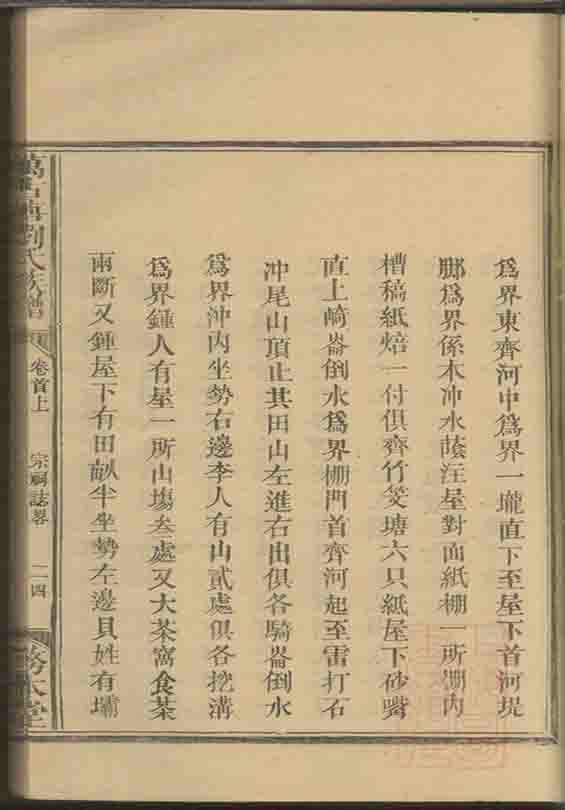 為界東齊河中為界一壠直下至屋下首河堤
腳為界係本冲水蔭注屋對面紙棚一所棚内
槽稿紙焙一付俱齊竹笅塘六只紙屋下砂嘴
直上崎崙倒水為界棚門首齊河起至雷打石
冲尾山頂止其田山左進右出俱各騎崙倒水
為界沖内坐勢右邊李人有山貳處俱各挖溝
為界鍾人有屋一所山塲叁處又大茶窩食茶
兩斷又鍾屋下有田畝半坐勢左邊貝姓有壩
劉氏族譜
卷首上
宗祠誌畧
二四
務本堂